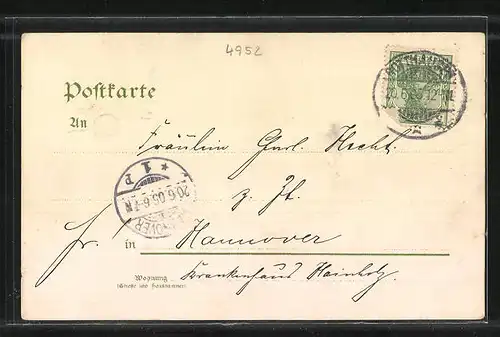 4952
20.6.05. 12-1N.
Postkarte
An
Fräulein Gurl. Hecht.
z. Zt.
* 1 P *
20.6.05.6-7N
HANNOVER
Fr.
in Hannover
Wohnung
(Straße und Hausnummer)
Krankenhaus Hainholz